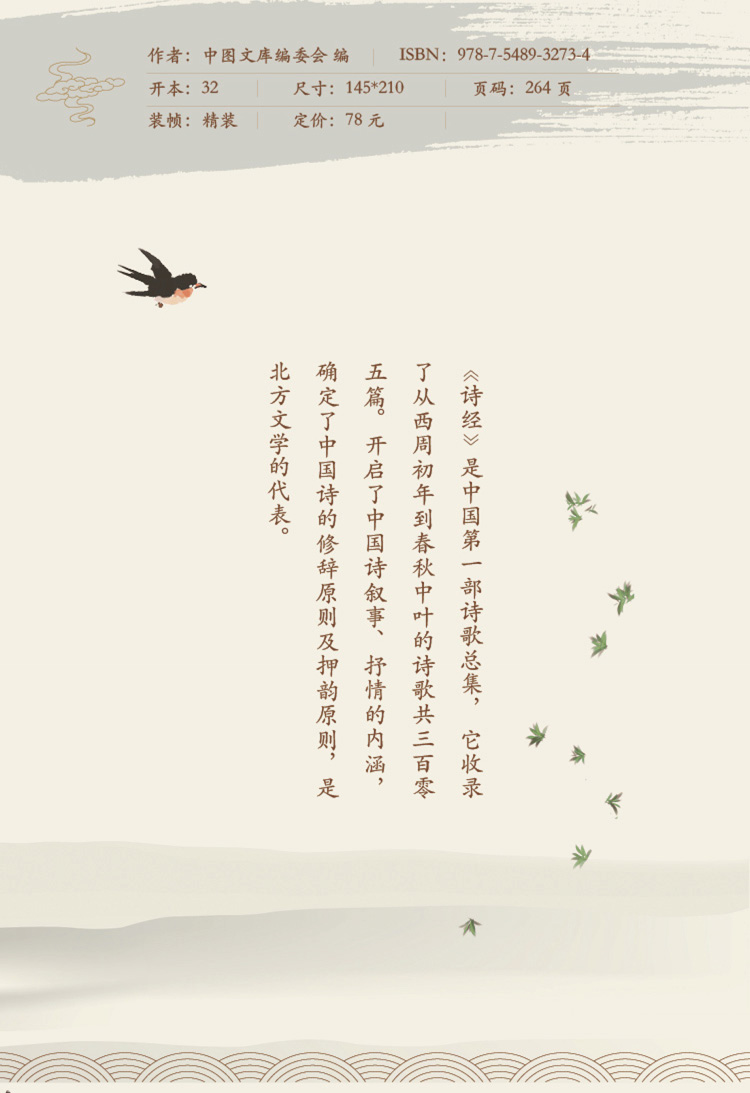 作者：中图文库编委会 编 ISBN：978-7-5489-3273-4
开本：32 尺寸：145*210 页码：264 页
装帧：精装 定价：78 元
《诗经》是中国第一部诗歌总集，它收录
了从西周初年到春秋中叶的诗歌共三百零
五篇。开启了中国诗叙事、抒情的内涵，
确定了中国诗的修辞原则及押韵原则，是
北方文学的代表。